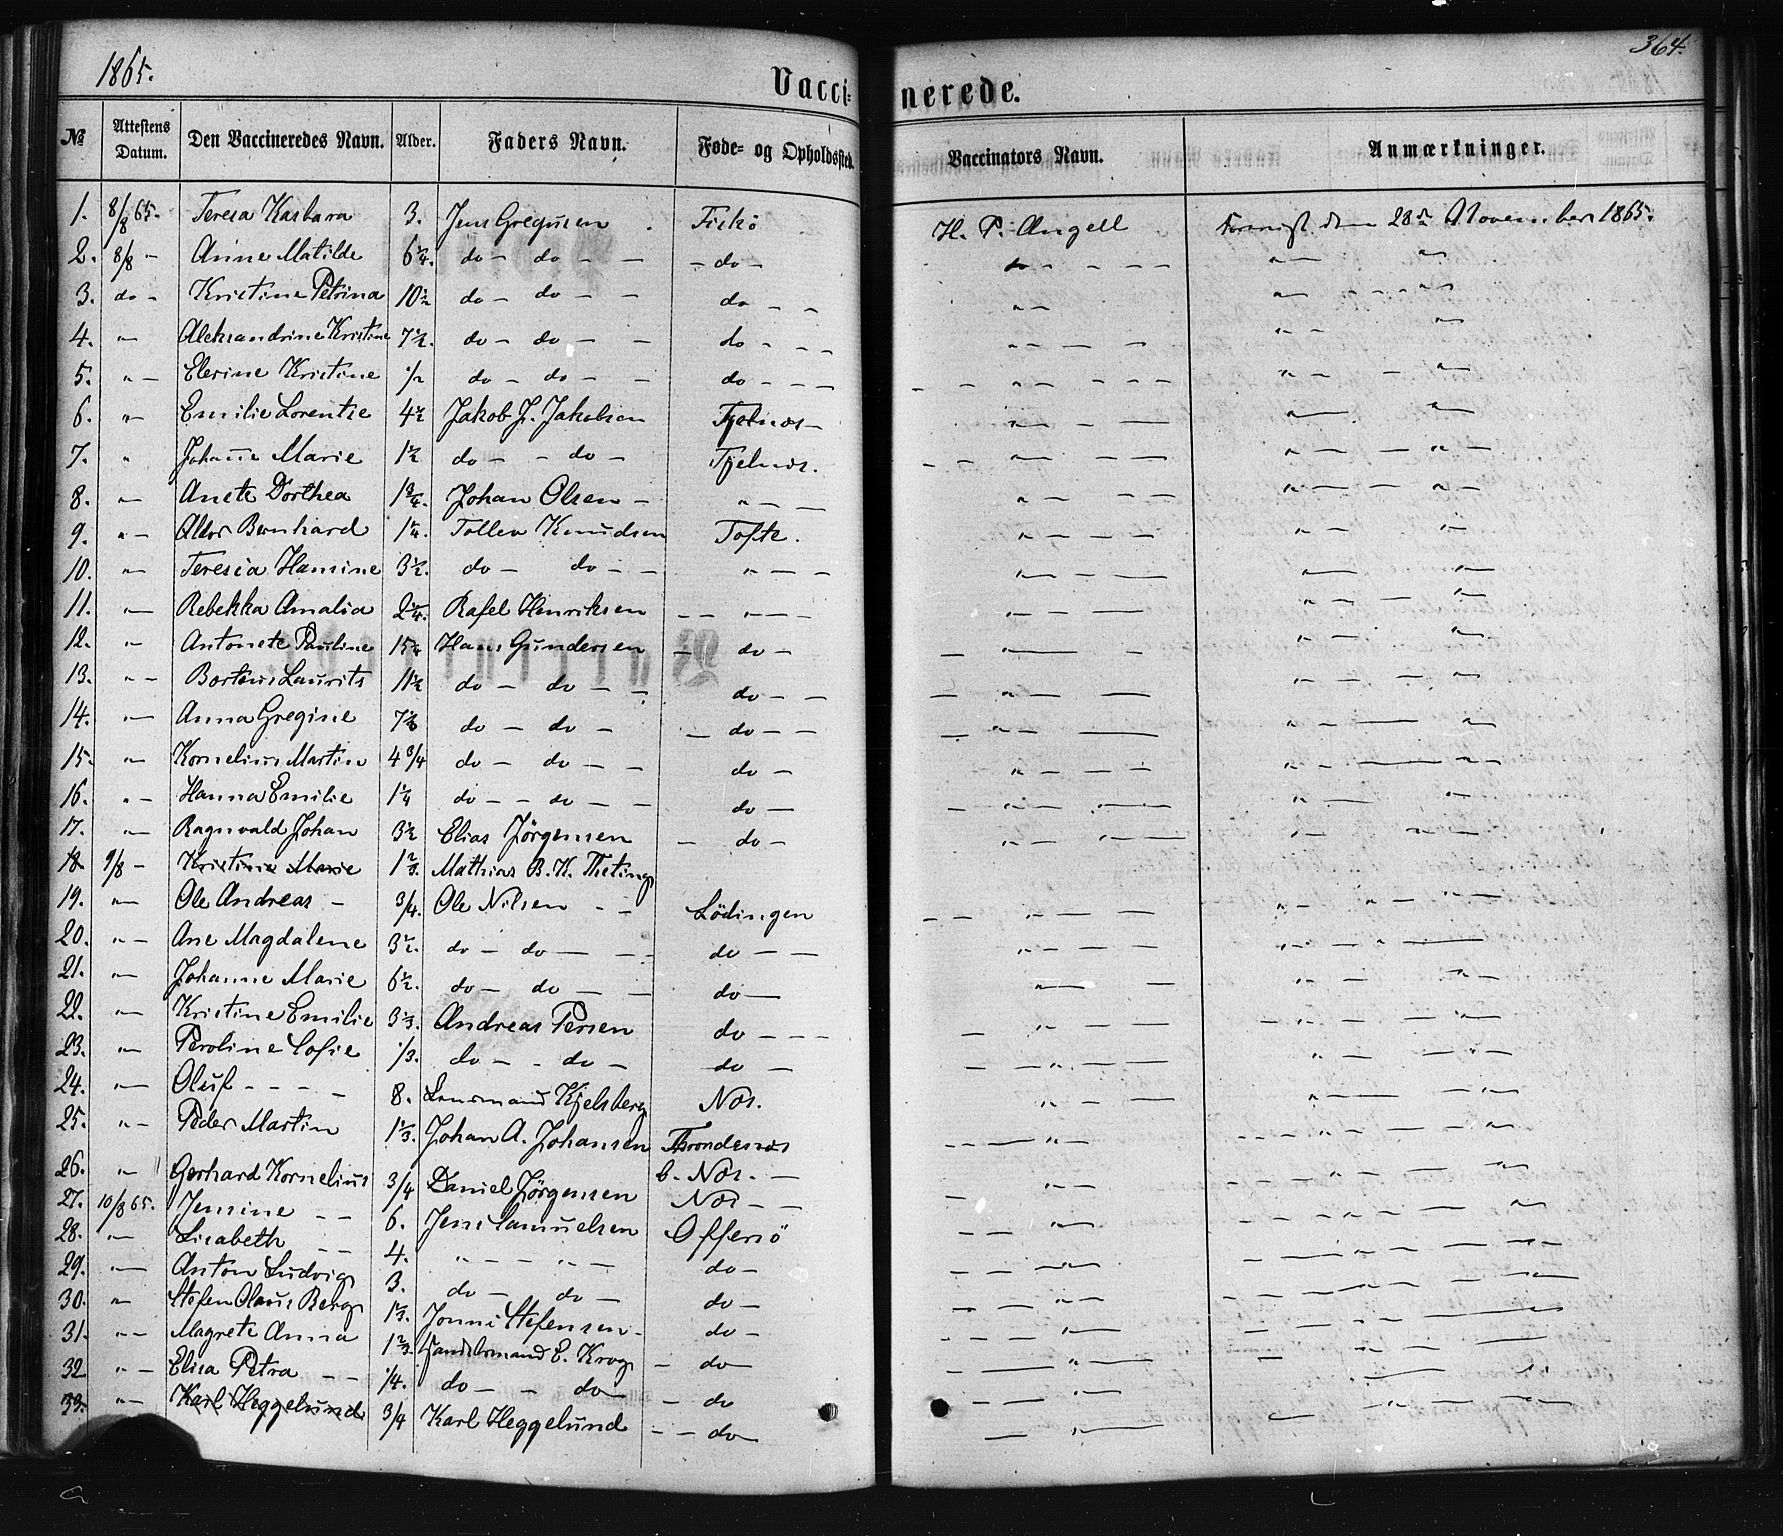 1865.
364.
Vacci=
nerede.
№ Attestens Datum. Den Vaccineredes Navn. Alder. Faders Navn. Føde- og Opholdssted. Vaccinators Navn. Anmærkninger.
1. 8/8 65. Teresa Karbara 3. Jens Gregusen Fiskö H. P. Angell den 28de November 1865.
2. 8/8 — Anne Matilde 6 1/4. do — do — — — do — " — — — — " — " —
3. do — Kristine Petrina 10 1/2 do — do — — do — — " — " — — — " —
4. " — Aleksandrine Kristine 7 1/2. do — do — — do — — — " — — — — " — " —
5. " — Elerine Kristine 1/2 do — do — — do — — — — — — " — — — " — — — " —
6. " — Emilie Lorentse 4 1/2 Jakob J. Jakobsen Tjelnæs — " — — — " — " —
7. " Johane Marie 1 1/2 do — — do — Tjelnæs. — — " — — — " — — — " —
8. " — Anete Dorthea 1 3/4. Johan Olsen — " — — " — — — " — — — " —
9. " — Bernhard 1 1/4. Tollev Knudsen Tofte. " — — — — " — " —
10. " — Teresia Hansine 3 1/2. do — do — — " — — " — — — " — " —
11. " — Rebekka Amalia 2 1/4. Rafel Henriksen — — " — — " — — — " — — — " —
12. " — Antonete Pauline 15 1/4 Hans Gundersen — do — — " — — — " — " —
13. " — Laurits 11 1/2 do — do — — do — — — " — — — " — — — " —
14. " — Anna Gregine 7 1/2 do — do — — do — — — " — — — " — — — " —
15. " — Kornelius Martin 4 3/4 do — do — — do — " — — — " — — — " —
16. " — Hanna Emilie 1 1/4 do — — do — — do — — " — — " — " — " —
17. " — Ragnvald Johan 3 1/2 Elias Jörgensen — do — " — " — " — " —
18. 9/8 — Kristine Marie 1 2/3. Mathias B. K. Theting
19. " — Ole Andreas — 3/4. Ole Nilsen — — Lödingen — — " — — — " — — " —
20. " — Ane Magdalene 3 1/2. do — do — — — do — — " — — — " — — " —
21. " — Johanne Marie 6 1/2. do — do — — do — " — — " — " —
22. " — Kristine Emilie 3 1/3. Andreas Persen do — — — — " — — — — " — " —
23. " — Peroline Sofie 1/3. do — — do — do — — — " — " — — " —
24. " — Oluf — — — 8. Lensmand Kjelsberg Næs. " — — — " — — " —
25. " — Peder Martin 1 1/3. Johan A. Johansen Trondenæs — — " — — — — " — —
26. " — Gerhard Kornelius 3/4 Daniel Jörgensen b. Næs. — — " — — " — —
27. 10/8 65. Jensine — — 6. Jens Samuelsen Næs — — " — — — " — " —
28. " — Lisabeth — — 4. " — — " — — Offersö — — " — — — " —
29. " — Anton Ludvig 3. do — do — do — — — " — — — " —
30. " — Stefen Olaus Berg 1 1/3. Jonni Stefensen — do — — " — — —
31. " — Magrete Anna 1 2/3. Handelsmand E. Krog do — — " — — —
32 " — Elisa Petra — — 1/4. do — — do — — do — — " — — " —
33. " — Karl Heggelund 3/4 Karl Heggelund — do — — — " — — " —
— — do —